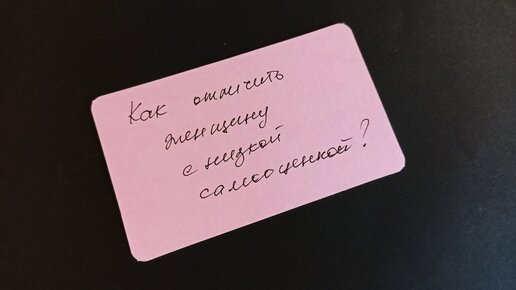 Как отличить
женщину
с низкой
самооценкой?